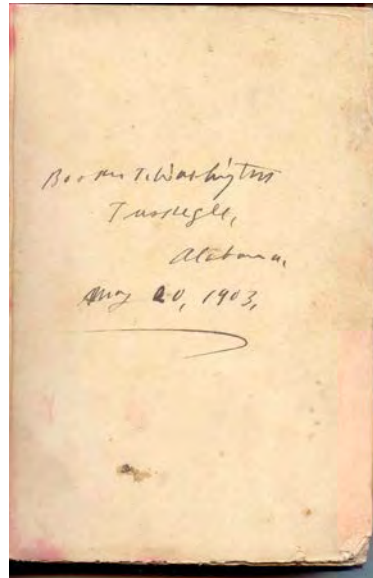 Booker T. Washington
Tuskegee,
Alabama,
May 20, 1903,